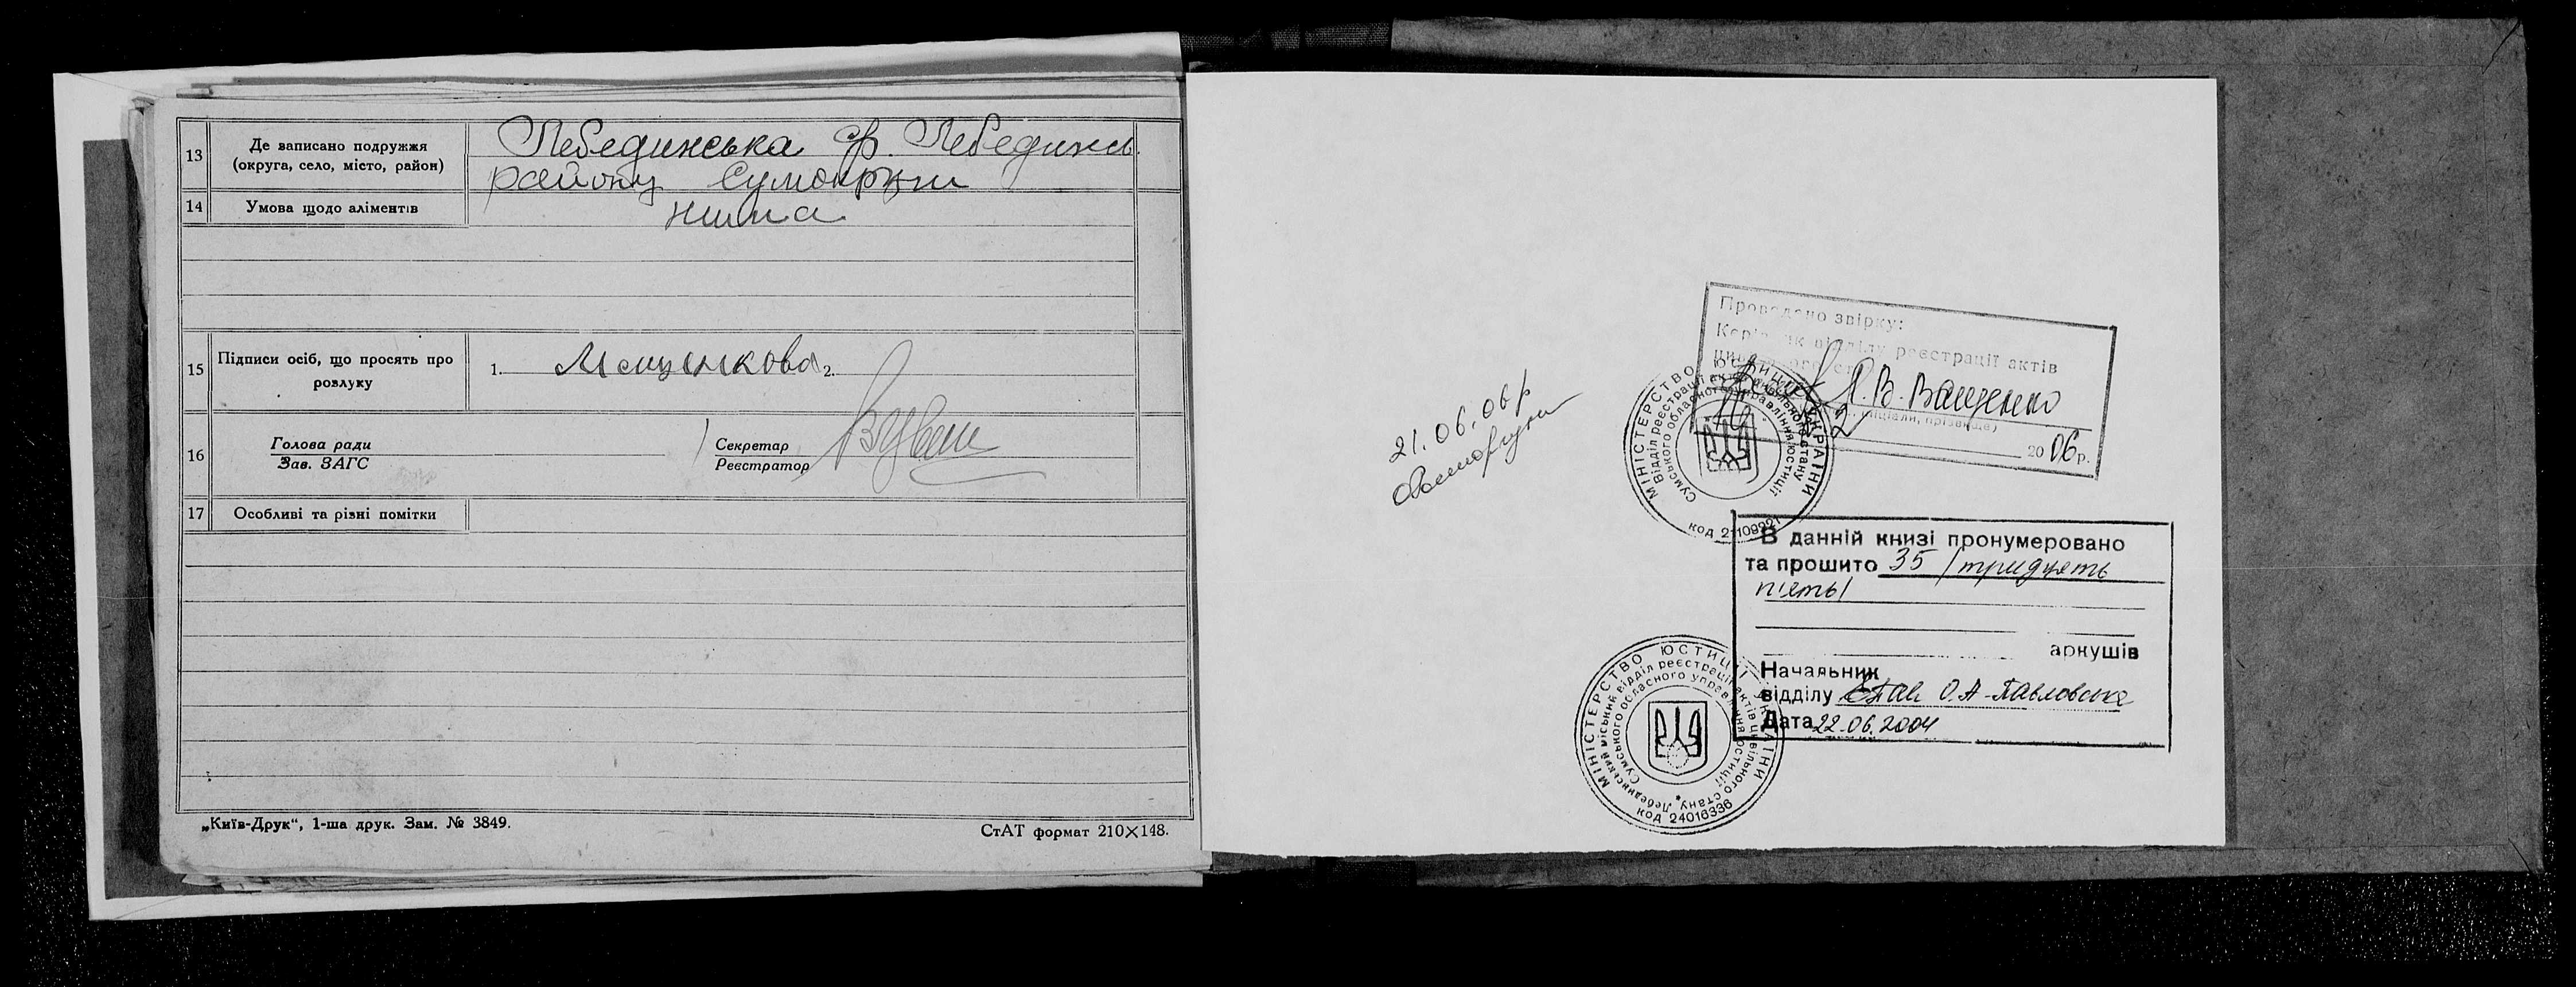 13 Де записано подружжя
(округа, село, місто, район)
Лебединська ср. Лебединськ.
району Сумокруги
14 Умова щодо аліментів
нима
15 Підписи осіб, що просять про
розлуку
1. 2.
16 Голова ради
Зав. ЗАГС
Секретар
Реєстратор
17 Особливі та різні помітки
„Київ-Друк“, 1-ша друк. Зам. № 3849.
СтАТ формат 210×148.
21.06.06р
Проведено звірку:
Керівник відділу реєстрації актів
Л.В. Ващенко
(ініціали, прізвище)
2006р.
МІНІСТЕРСТВО ЮСТИЦІЇ УКРАЇНИ
Відділ реєстрації актів цивільного стану
Сумського обласного управління юстиції
код 21109221
В данній книзі пронумеровано
та прошито 35 /тридцять
п'ять/
аркушів
Начальник
відділу О.А. Павловська
Дата 22.06.2004
МІНІСТЕРСТВО ЮСТИЦІЇ УКРАЇНИ
Лебединський міський відділ реєстрації актів цивільного стану
Сумського обласного управління юстиції
код 24016336